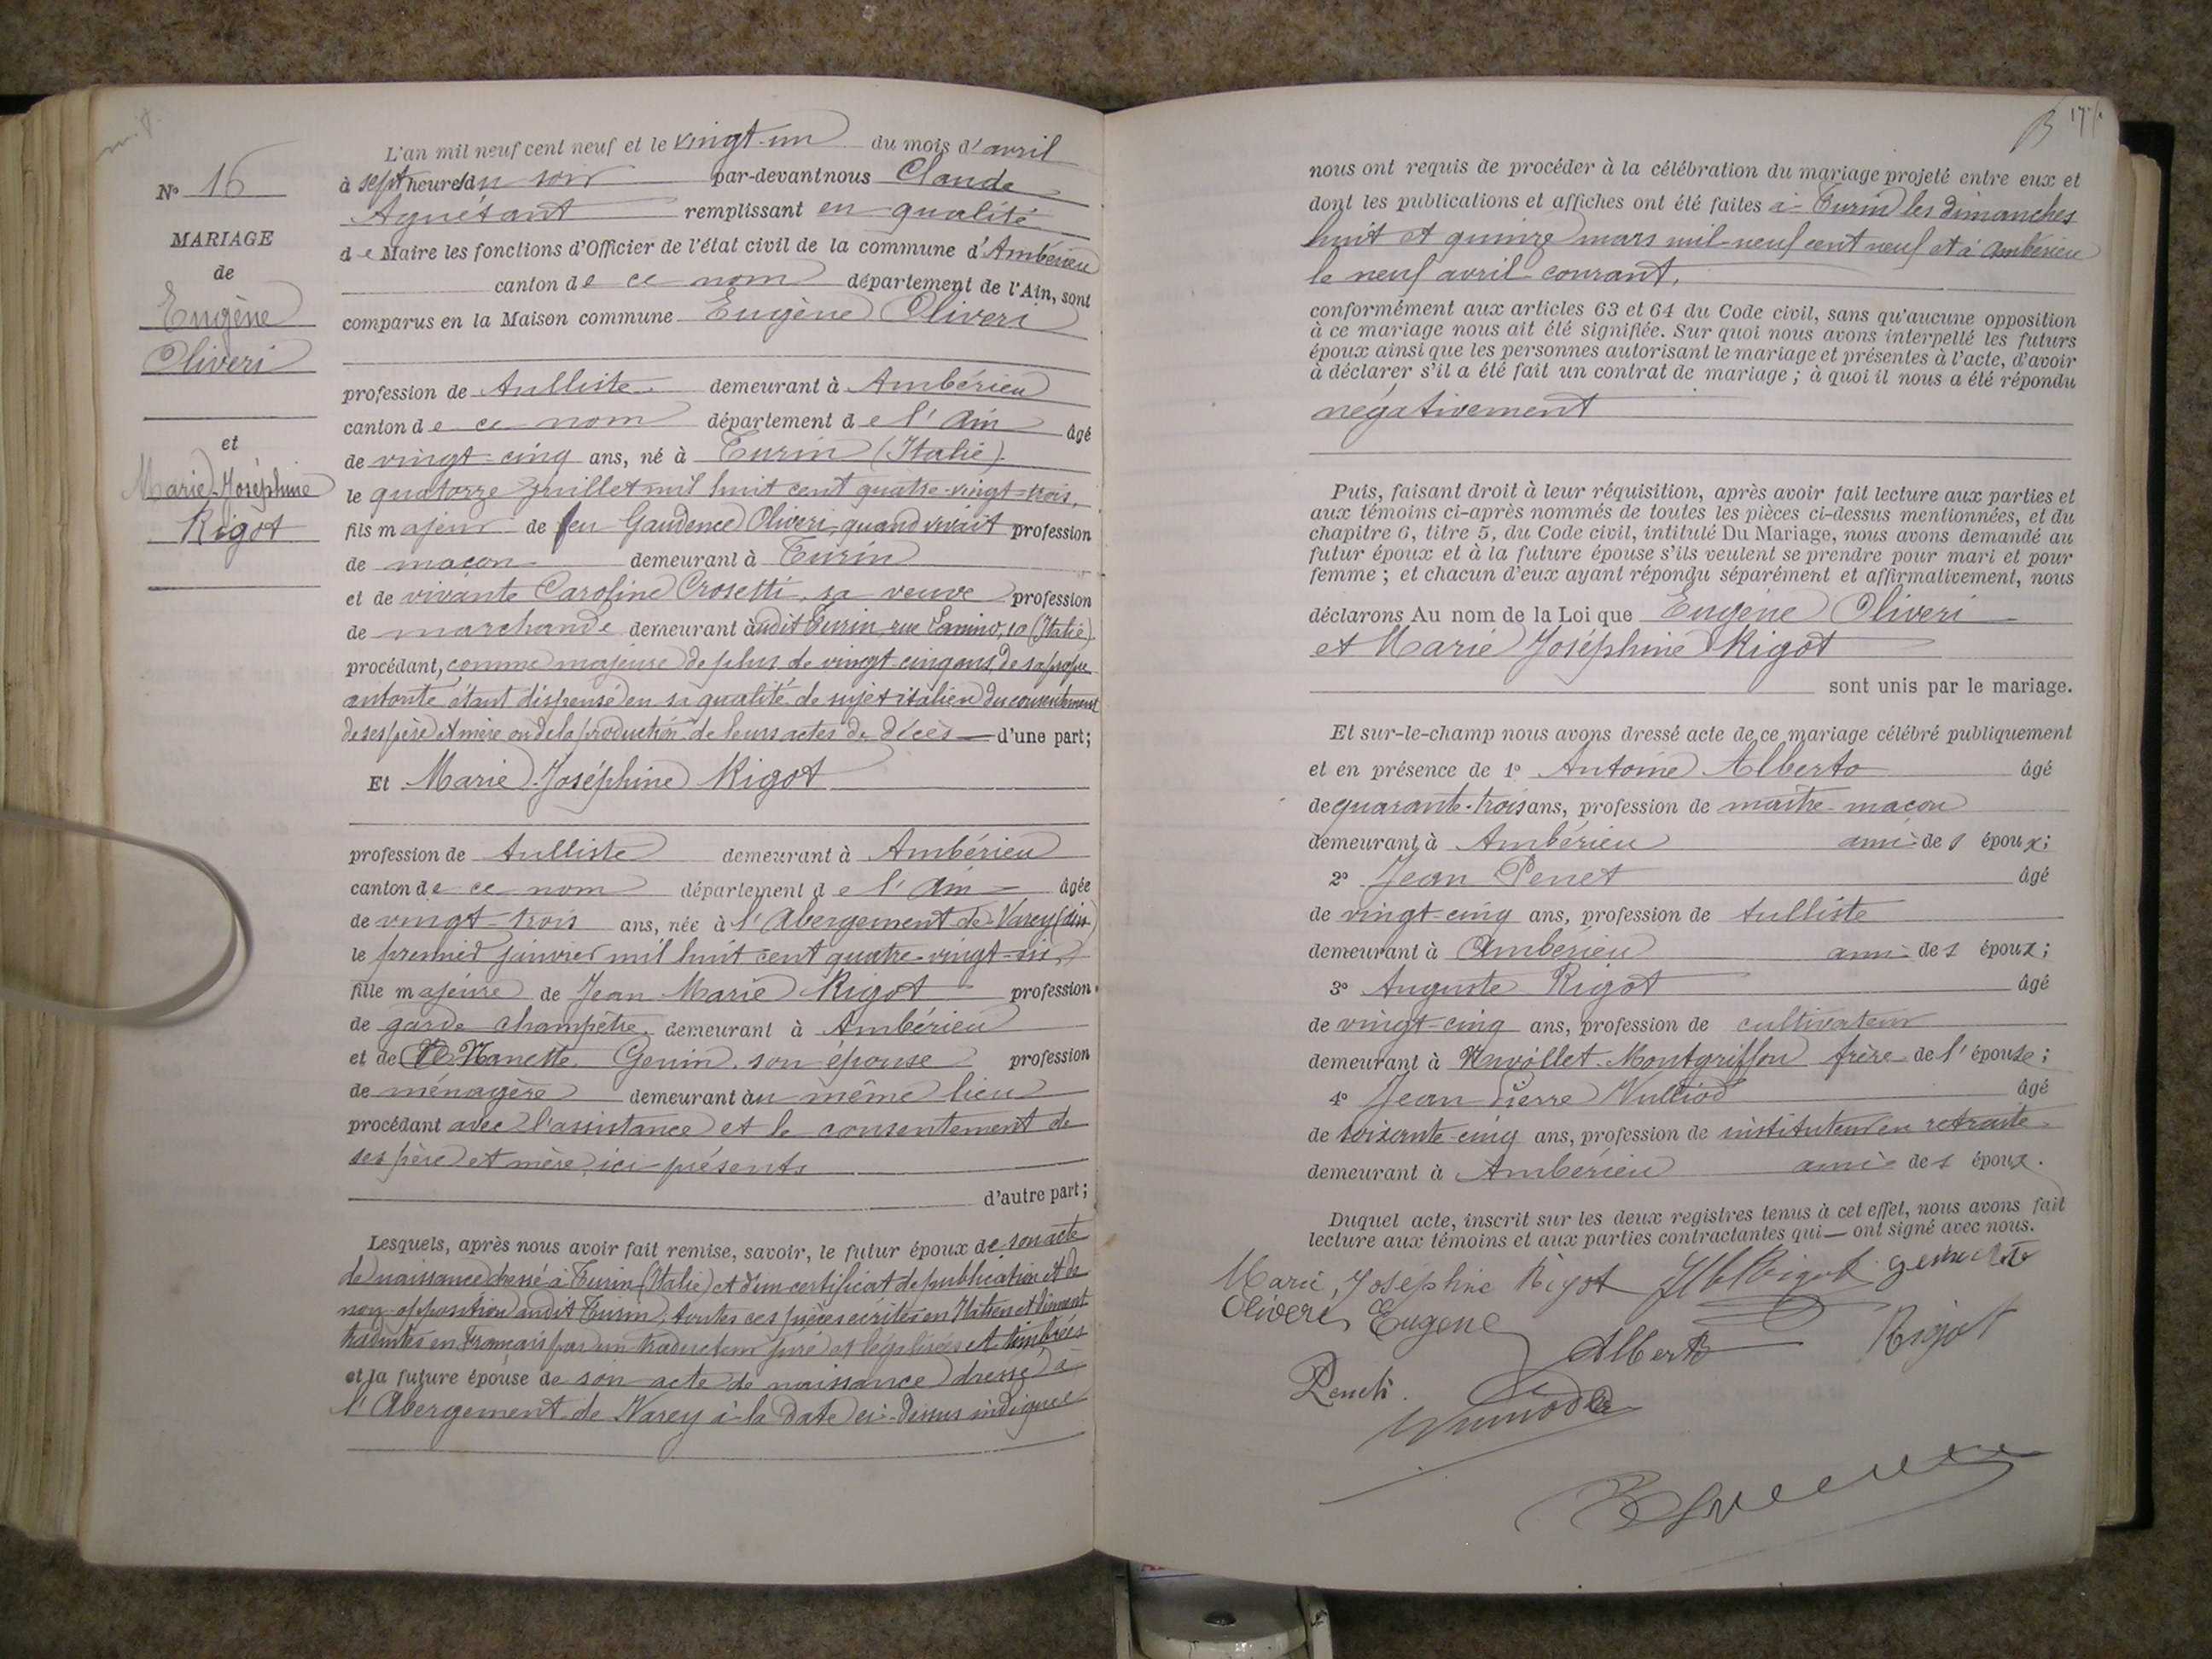 N° 16
MARIAGE
de
Eugène
Oliveri
et
Marie Joséphine
Rigot
L'an mil neuf cent neuf et le vingt-un du mois d'avril
à sept heures du soir par-devant nous Claude
Aguétant remplissant en qualité
de Maire les fonctions d'Officier de l'état civil de la commune d'Ambérieu
canton de ce nom département de l'Ain, sont
comparus en la Maison commune Eugène Oliveri
profession de tulliste demeurant à Ambérieu
canton de ce nom département de l'Ain âgé
de vingt-cinq ans, né à Turin (Italie)
le quatorze juillet mil huit cent quatre-vingt-trois,
fils majeur de feu Gaudence Oliveri, quand vivait profession
de maçon demeurant à Turin
et de vivante Caroline Crosetti, sa veuve profession
de marchande demeurant audit Turin, rue Lanino, 10 (Italie)
procédant, comme majeure de plus de vingt-cinq ans, de sa propre
autorité étant dispensé en sa qualité de sujet italien du consentement
de ses père et mère ou de la production de leurs actes de décès d'une part;
Et Marie Joséphine Rigot
profession de tulliste demeurant à Ambérieu
canton de ce nom département de l'Ain âgée
de vingt-trois ans, née à l'Abergement-de-Varey (Ain)
le premier janvier mil huit cent quatre-vingt-six,
fille majeure de Jean Marie Rigot profession
de garde champêtre demeurant à Ambérieu
et de Nanette Genin, son épouse profession
de ménagère demeurant au même lieu
procédant avec l'assistance et le consentement de
ses père et mère ici présents
d'autre part;
Lesquels, après nous avoir fait remise, savoir, le futur époux de son acte
de naissance dressé à Turin (Italie) et d'un certificat de publication et de
non-opposition audit Turin, toutes ces pièces écrites en Italien et dûment
traduites en Français par un traducteur juré et légalisées et timbrées
et la future épouse de son acte de naissance dressé à
l'Abergement de Varey à la date ci-dessus indiquée
nous ont requis de procéder à la célébration du mariage projeté entre eux et
dont les publications et affiches ont été faites à Turin les dimanches
huit et quinze mars mil-neuf cent neuf et à Ambérieu
le neuf avril courant,
conformément aux articles 63 et 64 du Code civil, sans qu'aucune opposition
à ce mariage nous ait été signifiée. Sur quoi nous avons interpellé les futurs
époux ainsi que les personnes autorisant le mariage et présentes à l'acte, d'avoir
à déclarer s'il a été fait un contrat de mariage ; à quoi il nous a été répondu
négativement
Puis, faisant droit à leur réquisition, après avoir fait lecture aux parties et
aux témoins ci-après nommés de toutes les pièces ci-dessus mentionnées, et du
chapitre 6, titre 5, du Code civil, intitulé Du Mariage, nous avons demandé au
futur époux et à la future épouse s'ils veulent se prendre pour mari et pour
femme ; et chacun d'eux ayant répondu séparément et affirmativement, nous
déclarons Au nom de la Loi que Eugène Oliveri
et Marie Joséphine Rigot
sont unis par le mariage.
Et sur-le-champ nous avons dressé acte de ce mariage célébré publiquement
et en présence de 1° Antoine Alberto âgé
de quarante-trois ans, profession de maître-maçon
demeurant à Ambérieu ami des époux;
2° Jean Penet âgé
de vingt-cinq ans, profession de tulliste
demeurant à Ambérieu ami des époux;
3° Auguste Rigot âgé
de vingt-cinq ans, profession de cultivateur
demeurant à Nivollet-Montgriffon frère de l'épouse;
4° Jean Pierre Vulliod âgé
de soixante-cinq ans, profession de instituteur en retraite
demeurant à Ambérieu ami des époux.
Duquel acte, inscrit sur les deux registres tenus à cet effet, nous avons fait
lecture aux témoins et aux parties contractantes qui ont signé avec nous.
Marie, Joséphine Rigot
Oliveri Eugene
Alberto Rigot